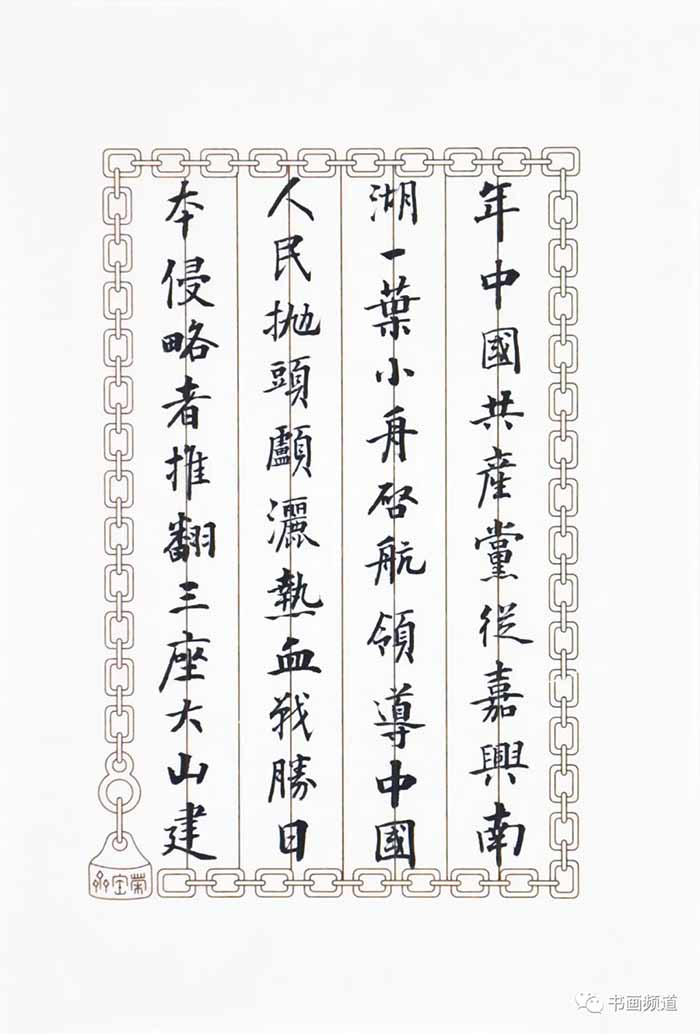 年中國共産黨從嘉興南
湖一葉小舟啓航領導中國
人民抛頭顱灑熱血戰勝日
本侵略者推翻三座大山建
榮宝齋
书画频道